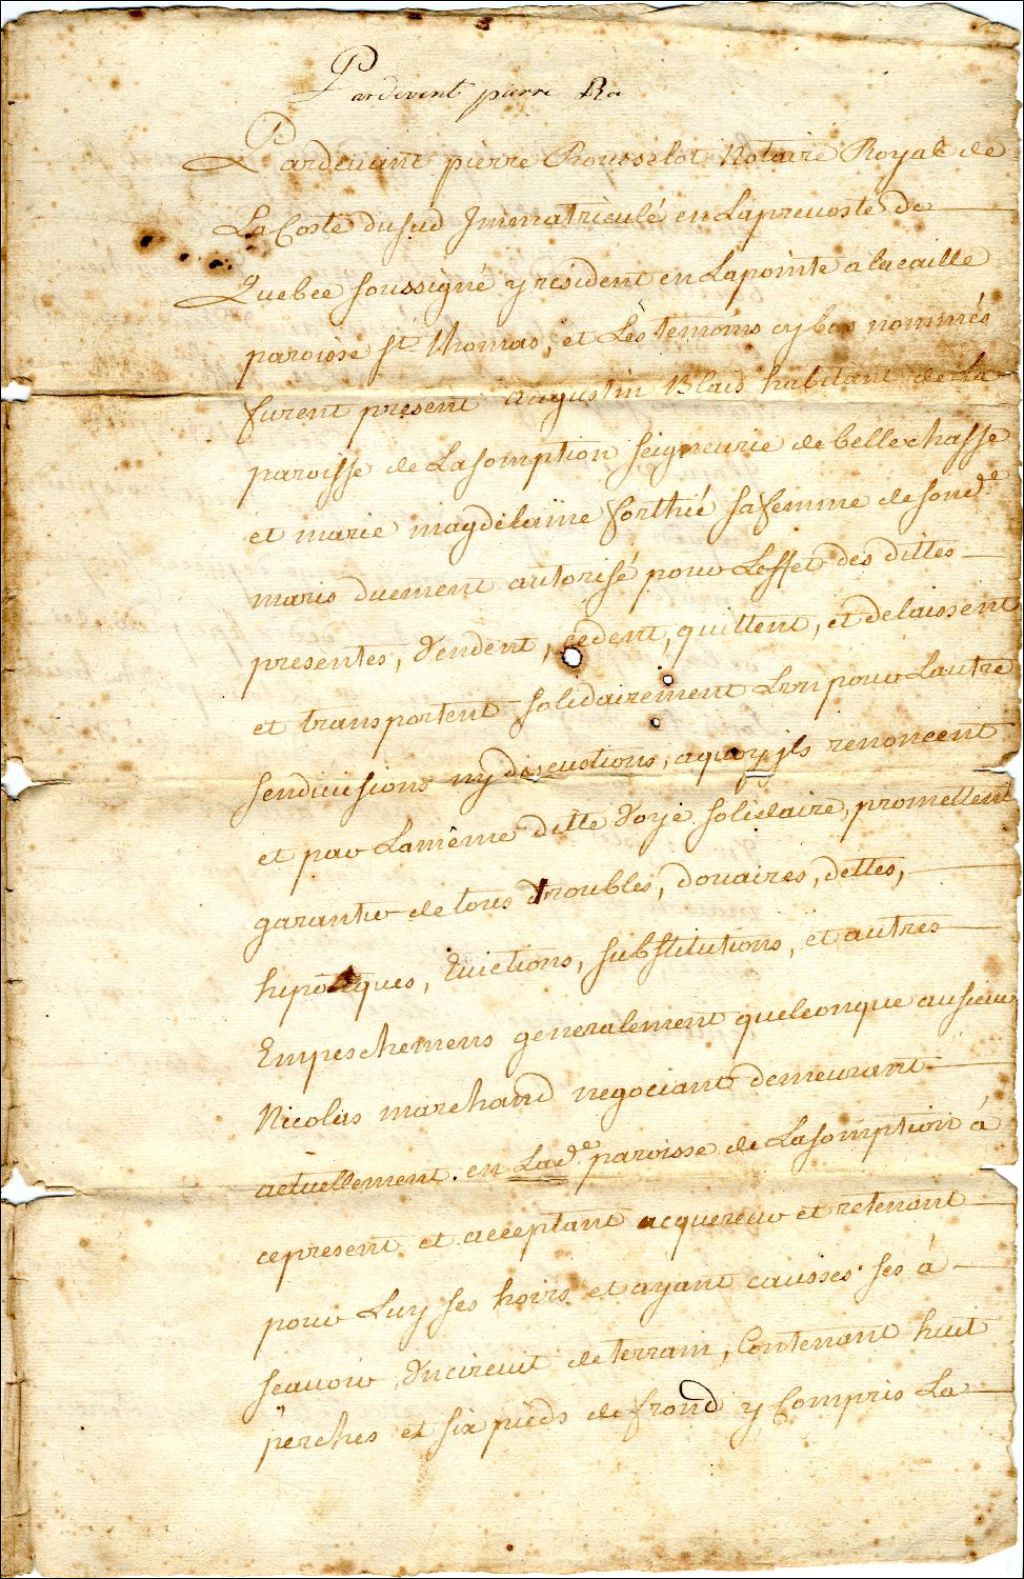 Pardevent pierre Ro
Pardevant pierre Rousselot Notaire Royal de
La Coste du sud Jmmatriculé en Laprevosté de
Quebec soussigné y resident en Lapointe a lacaille
paroisse st thomas, et Les temoins cy bas nommés
furent present augustin Blais habitant de La
paroisse de Lasomption seigneurie de bellechasse
et marie magdelaine forthié sa femme de sond.e
maris duement autorisé pour Leffet des dittes
presentes, Vendent, cedent, quittent, et delaissent
et transportent solidairement Lun pour Lautre
sendivisions ny discutions, aquoy jls renoncent
et par Lamême ditte Voye solidaire, promettent
garantir de tous troubles, douaires, dettes,
hipoteques, Evictions, substitutions, et autres
Empeschemens generalement quelconque au sieur
Nicolas marchand negociant demeurant
actuellement. en Lad.e paroisse de Lasomption à
cepresent et acceptant acquereur et retenant
pour Luy ses hoirs et ayant causses ses à
scavoir, Un circuit de terrain, Contenant huit
perches et six pieds de frond y Compris La